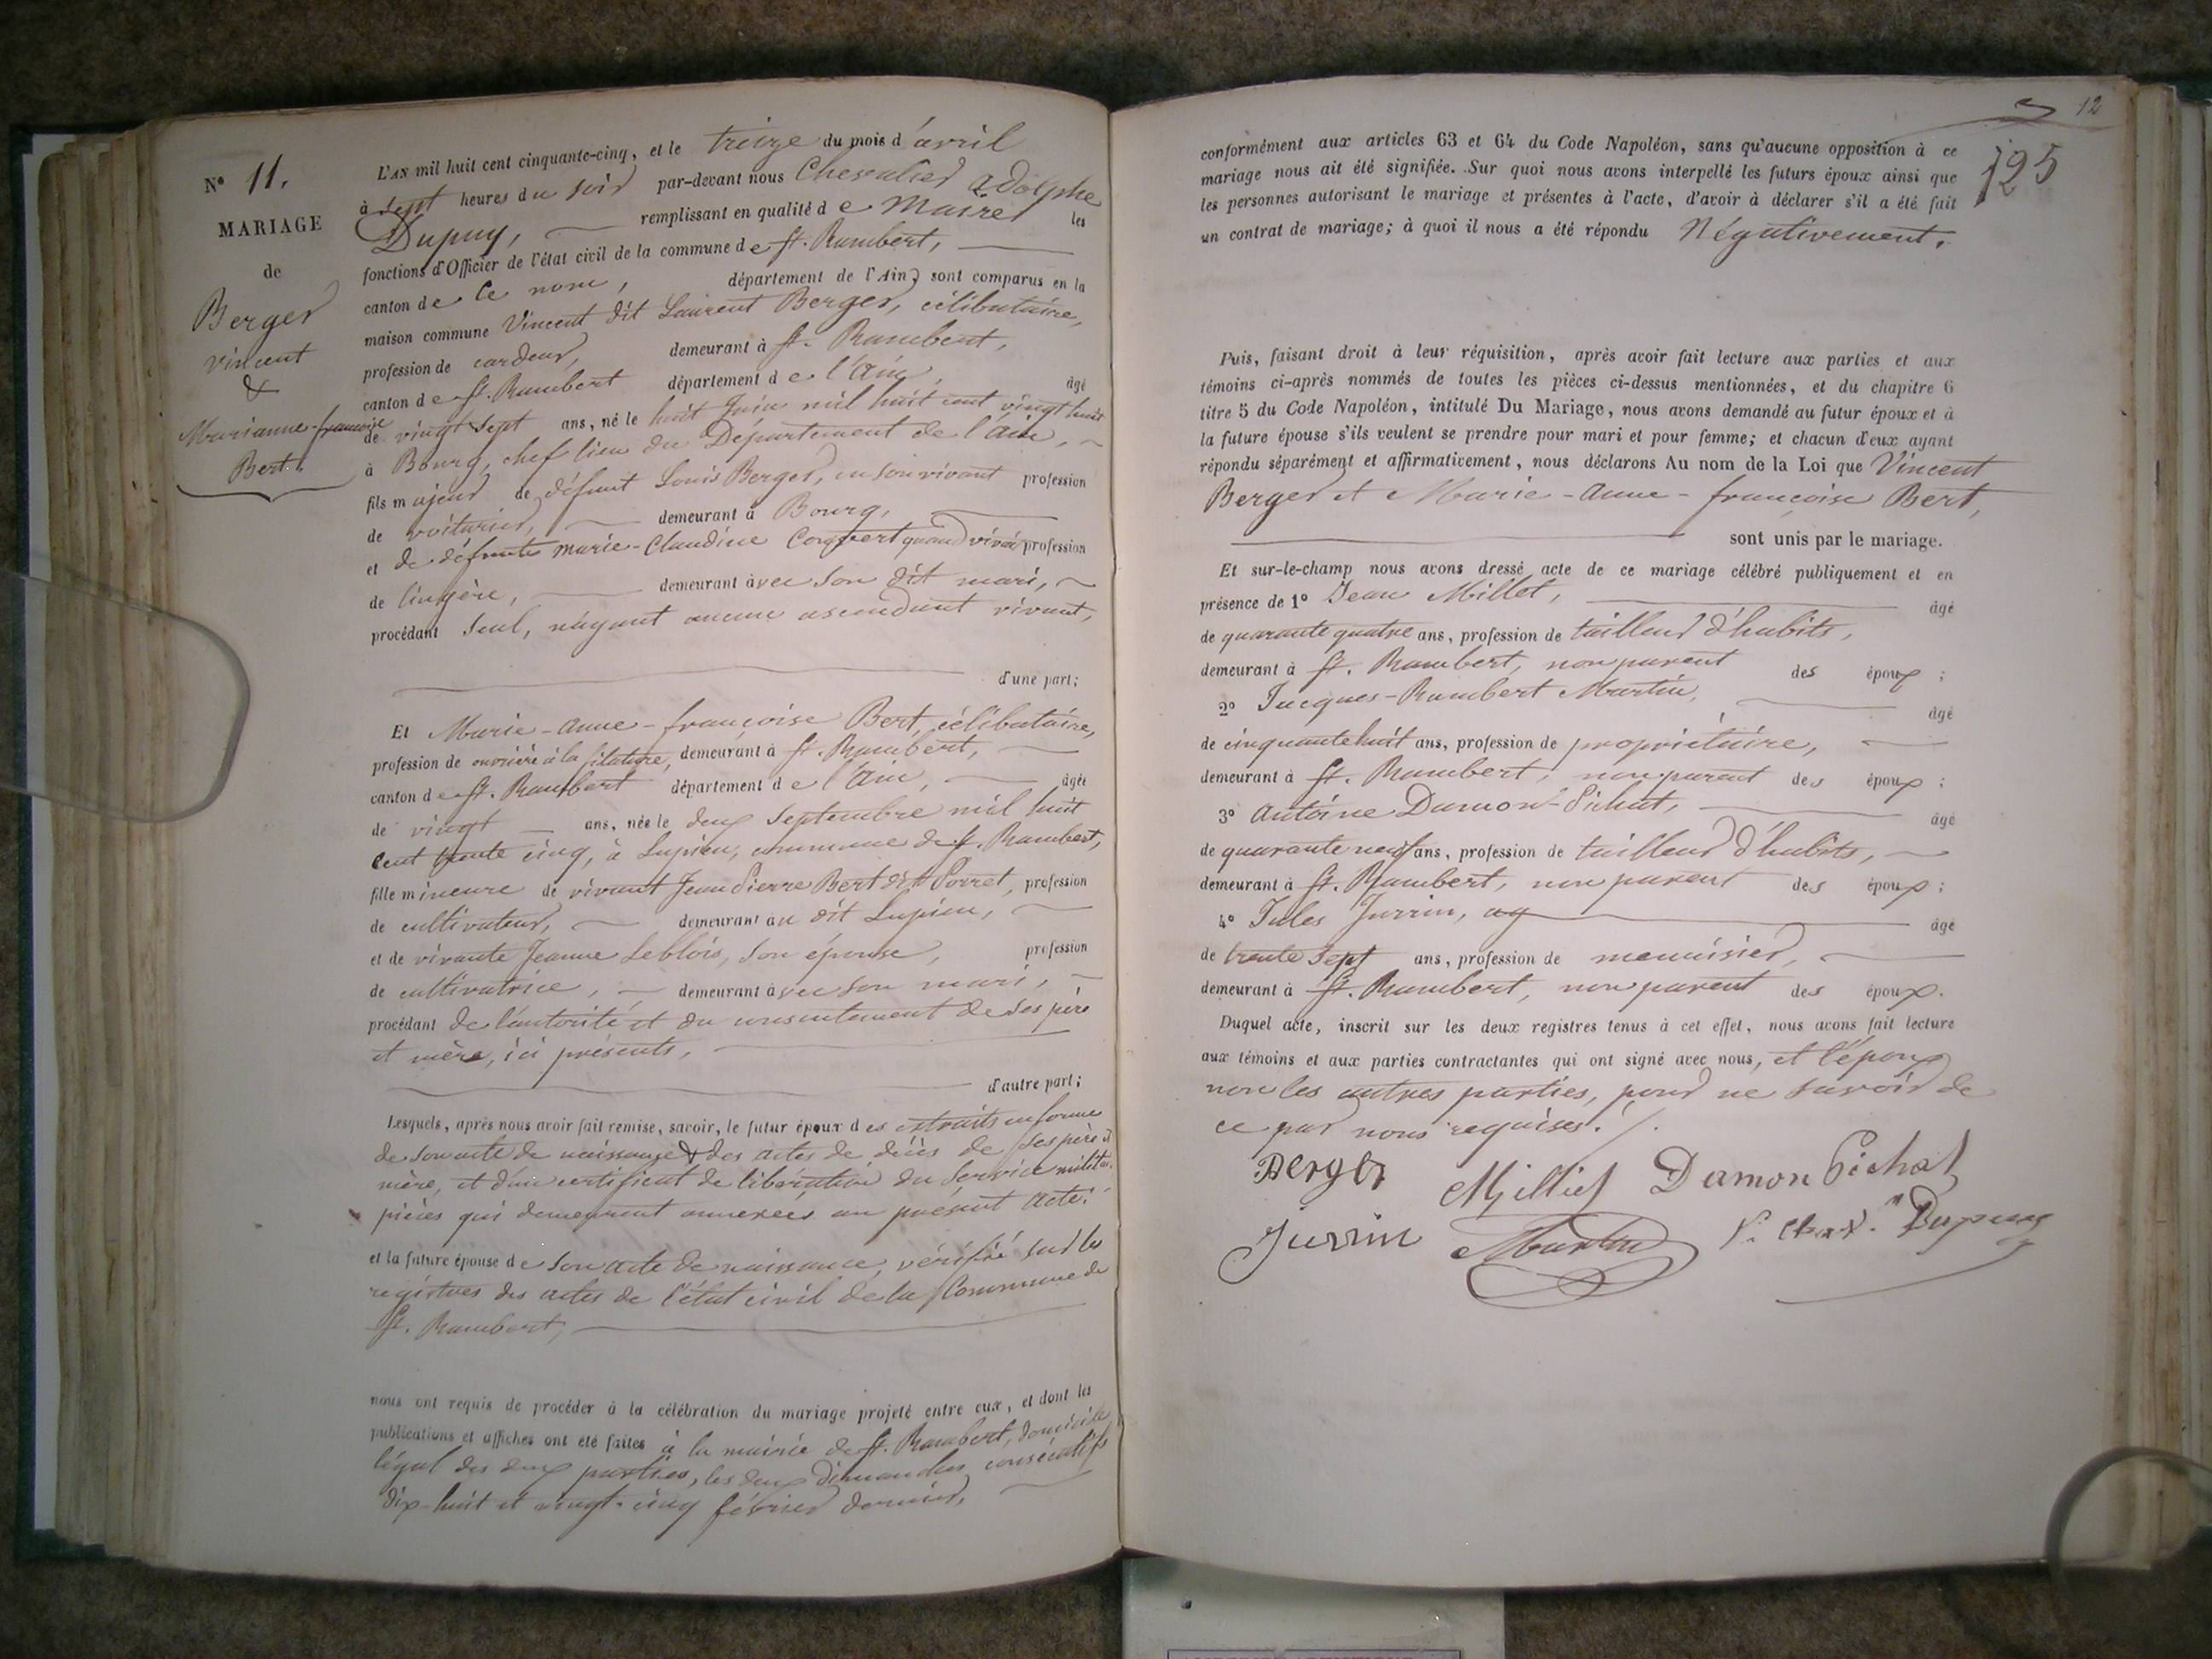 N° 11.
MARIAGE
de
Berger
Vincent
&
Marianne-françoise
Bert.
L'AN mil huit cent cinquante-cinq, et le treize du mois d'avril
à sept heures du soir par-devant nous Chevalier Adolphe
Dupuy, remplissant en qualité de Maire les
fonctions d'Officier de l'état civil de la commune de St. Rambert,
canton de ce nom, département de l'Ain, sont comparus en la
maison commune Vincent dit Laurent Berger, célibataire,
profession de cardeur, demeurant à St. Rambert,
canton de St. Rambert département de l'Ain, âgé
de vingt sept ans, né le huit Juin mil huit cent vingt huit
à Bourg, chef lieu du Département de l'Ain,
fils majeur de défunt Louis Berger, en son vivant profession
de voiturier, demeurant à Bourg,
et de défunte marie-Claudine quand vivait profession
de lingère, demeurant avec son dit mari,
procédant seul, n'ayant aucun ascendant vivant,
d'une part;
Et Marie-anne-françoise Bert, célibataire,
profession de ouvrière à la filature, demeurant à St. Rambert,
canton de St. Rambert département de l'Ain, âgée
de vingt ans, née le deux Septembre mil huit
cent trente cinq, à Lupieu, commune de St. Rambert,
fille mineure de vivant Jean Pierre Bert dit Porret, profession
de cultivateur, demeurant au dit Lupieu,
et de vivante Jeanne Leblois, son épouse, profession
de cultivatrice, demeurant avec son mari,
procédant de l'autorité et du consentement de ses père
et mère, ici présents,
d'autre part;
Lesquels, après nous avoir fait remise, savoir, le futur époux des extraits en forme
de son acte de naissance & des actes de décès de ses père et
mère, et d'un certificat de libération du service militre.
pièces qui demeurent annexées au présent acte.
et la future épouse de son acte de naissance, vérifié sur les
registres des actes de l'état civil de la Commune de
St. Rambert,
nous ont requis de procéder à la célébration du mariage projeté entre eux, et dont les
publications et affiches ont été faites à la mairie de St. Rambert, domicile
légal des deux parties, les deux dimanches consécutifs
dix-huit et vingt-cinq février dernier,
12
125
conformément aux articles 63 et 64 du Code Napoléon, sans qu'aucune opposition à ce
mariage nous ait été signifiée. Sur quoi nous avons interpellé les futurs époux ainsi que
les personnes autorisant le mariage et présentes à l'acte, d'avoir à déclarer s'il a été fait
un contrat de mariage; à quoi il nous a été répondu Négativement.
Puis, faisant droit à leur réquisition, après avoir fait lecture aux parties et aux
témoins ci-après nommés de toutes les pièces ci-dessus mentionnées, et du chapitre 6
titre 5 du Code Napoléon, intitulé Du Mariage, nous avons demandé au futur époux et à
la future épouse s'ils veulent se prendre pour mari et pour femme; et chacun d'eux ayant
répondu séparément et affirmativement, nous déclarons Au nom de la Loi que Vincent
Berger et Marie-Anne-françoise Bert,
sont unis par le mariage.
Et sur-le-champ nous avons dressé acte de ce mariage célébré publiquement et en
présence de 1° Jean Millet, âgé
de quarante quatre ans, profession de tailleur d'habits,
demeurant à St. Rambert, non parent des époux;
2° Jacques-Rambert Martin, âgé
de cinquante huit ans, profession de propriétaire,
demeurant à St. Rambert, non parent des époux;
3° Antoine Damon-Pichat, âgé
de quarante neuf ans, profession de tailleur d'habits,
demeurant à St. Rambert, non parent des époux;
4° Jules Jurrin, ag âgé
de trente sept ans, profession de menuisier,
demeurant à St. Rambert, non parent des époux.
Duquel acte, inscrit sur les deux registres tenus à cet effet, nous avons fait lecture
aux témoins et aux parties contractantes qui ont signé avec nous, et l'époux
non les autres parties, pour ne savoir de
ce par nous requises. /.
Berger Milliet Damon Pichat
Jurrin Martin Dupuy